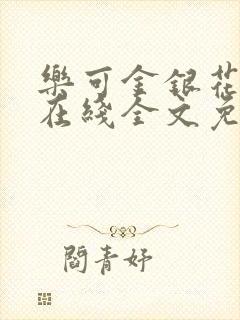 樂可金銀花
在綫全文免
閻青妤